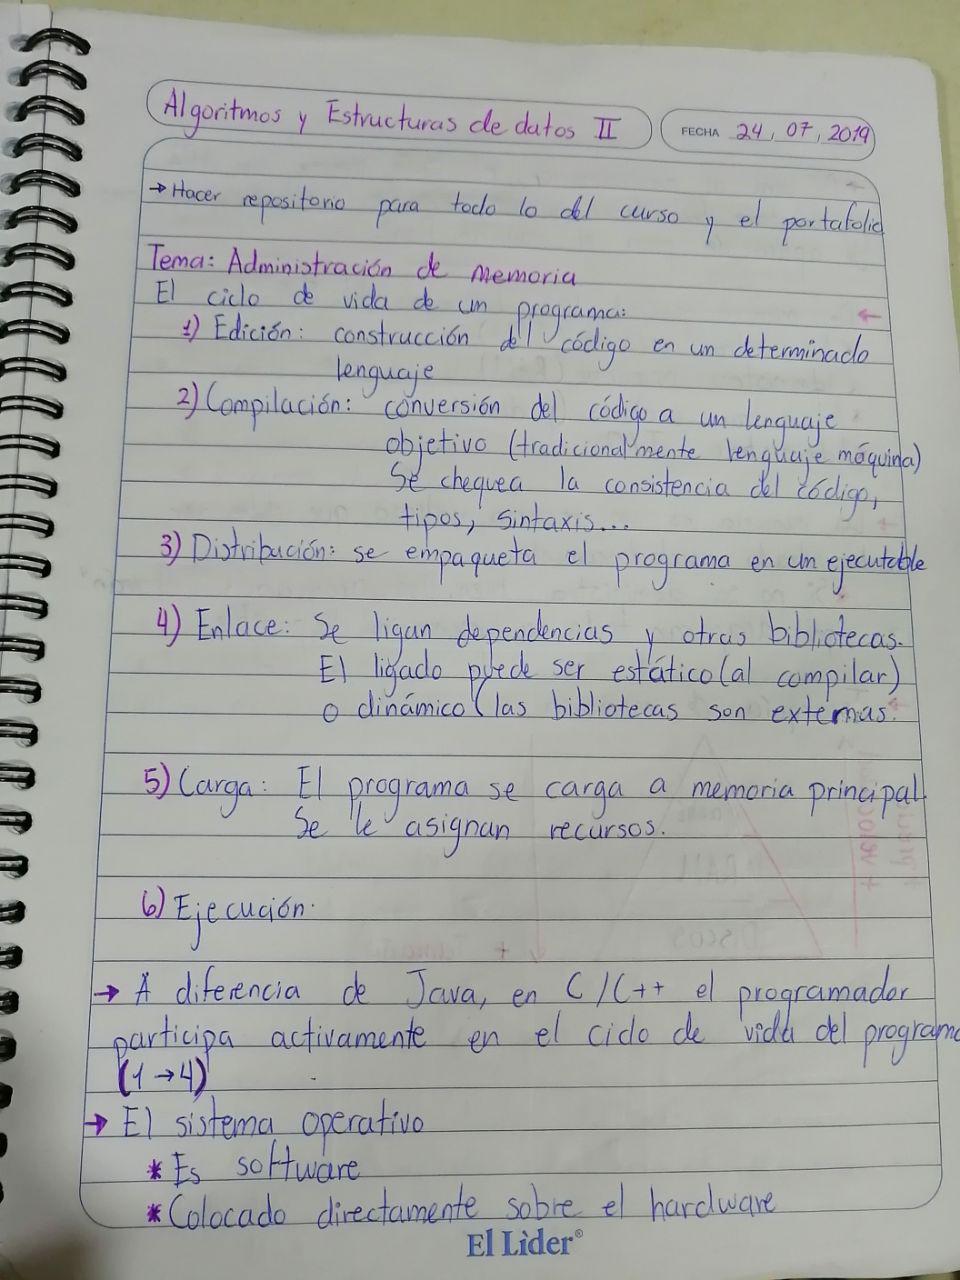 Algoritmos y Estructuras de datos II
FECHA 24, 07, 2019
→ Hacer repositorio para todo lo del curso y el portafolio
Tema: Administración de memoria
El ciclo de vida de un programa:
1) Edición: construcción del código en un determinado
lenguaje
2) Compilación: conversión del código a un lenguaje
objetivo (tradicionalmente lenguaje máquina)
Se chequea la consistencia del código,
tipos, sintaxis...
3) Distribución: se empaqueta el programa en un ejecutable
4) Enlace: Se ligan dependencias y otras bibliotecas.
El ligado puede ser estático (al compilar)
o dinámico (las bibliotecas son externas.
5) Carga: El programa se carga a memoria principal
Se le asignan recursos.
6) Ejecución.
→ A diferencia de Java, en C/C++ el programador
participa activamente en el ciclo de vida del programa
(1→4)
→ El sistema operativo
* Es software
* Colocado directamente sobre el hardware
El Lider®